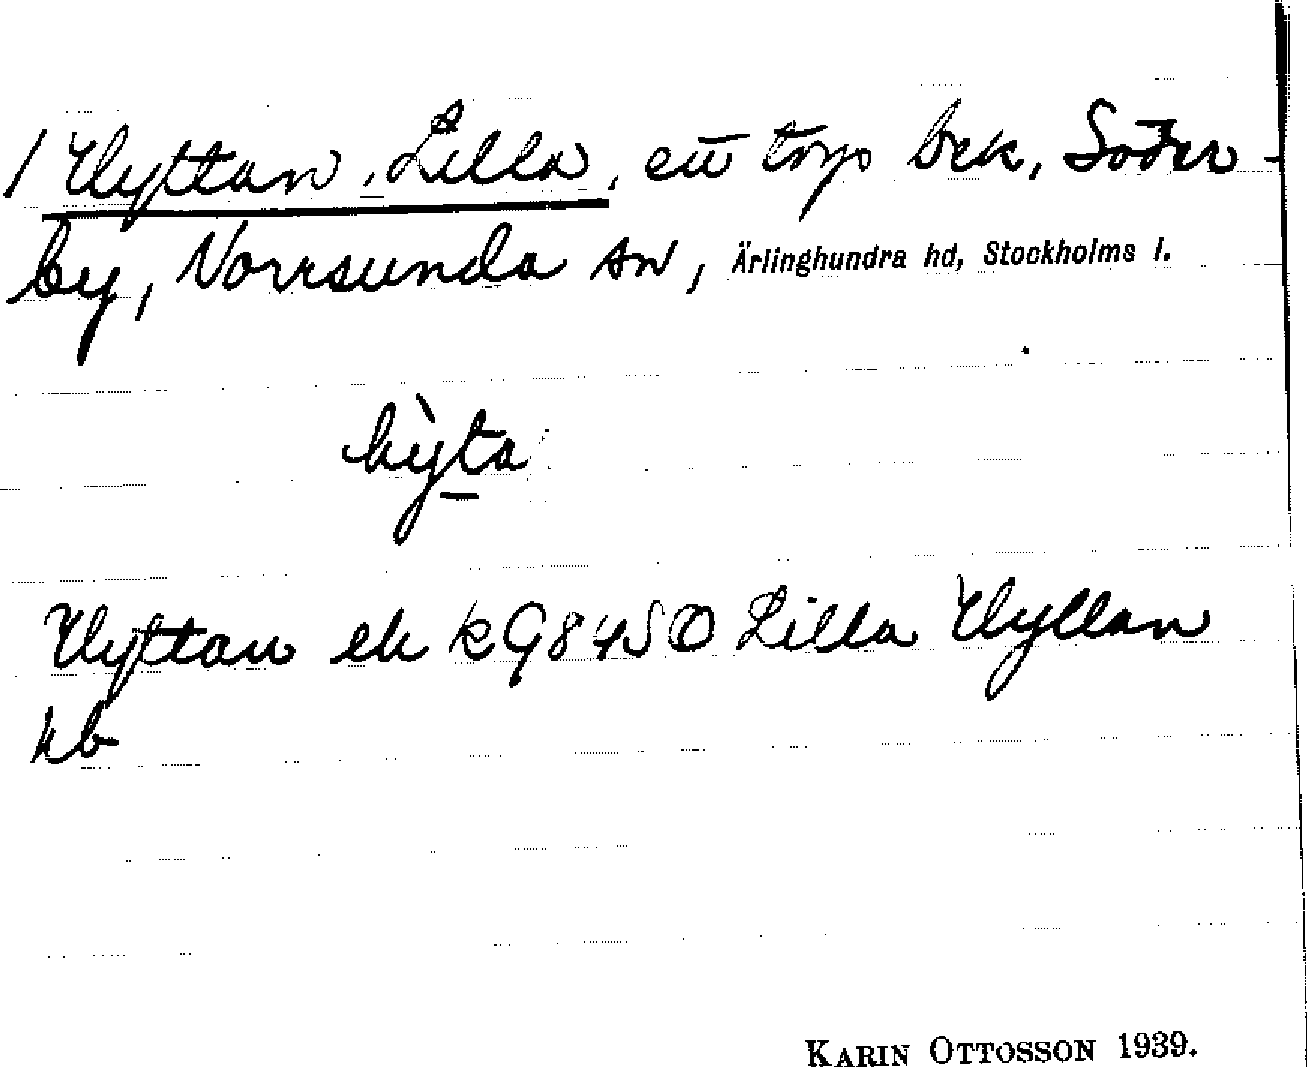 / Hyttan, Lilla, ett torp bek, Söder-
by, Norrsunda sn, Ärlinghundra hd, Stockholms l.
hỳta
Hyttan ek k 98 4 SO Lilla Hyttan
kb
KARIN OTTOSSON 1939.